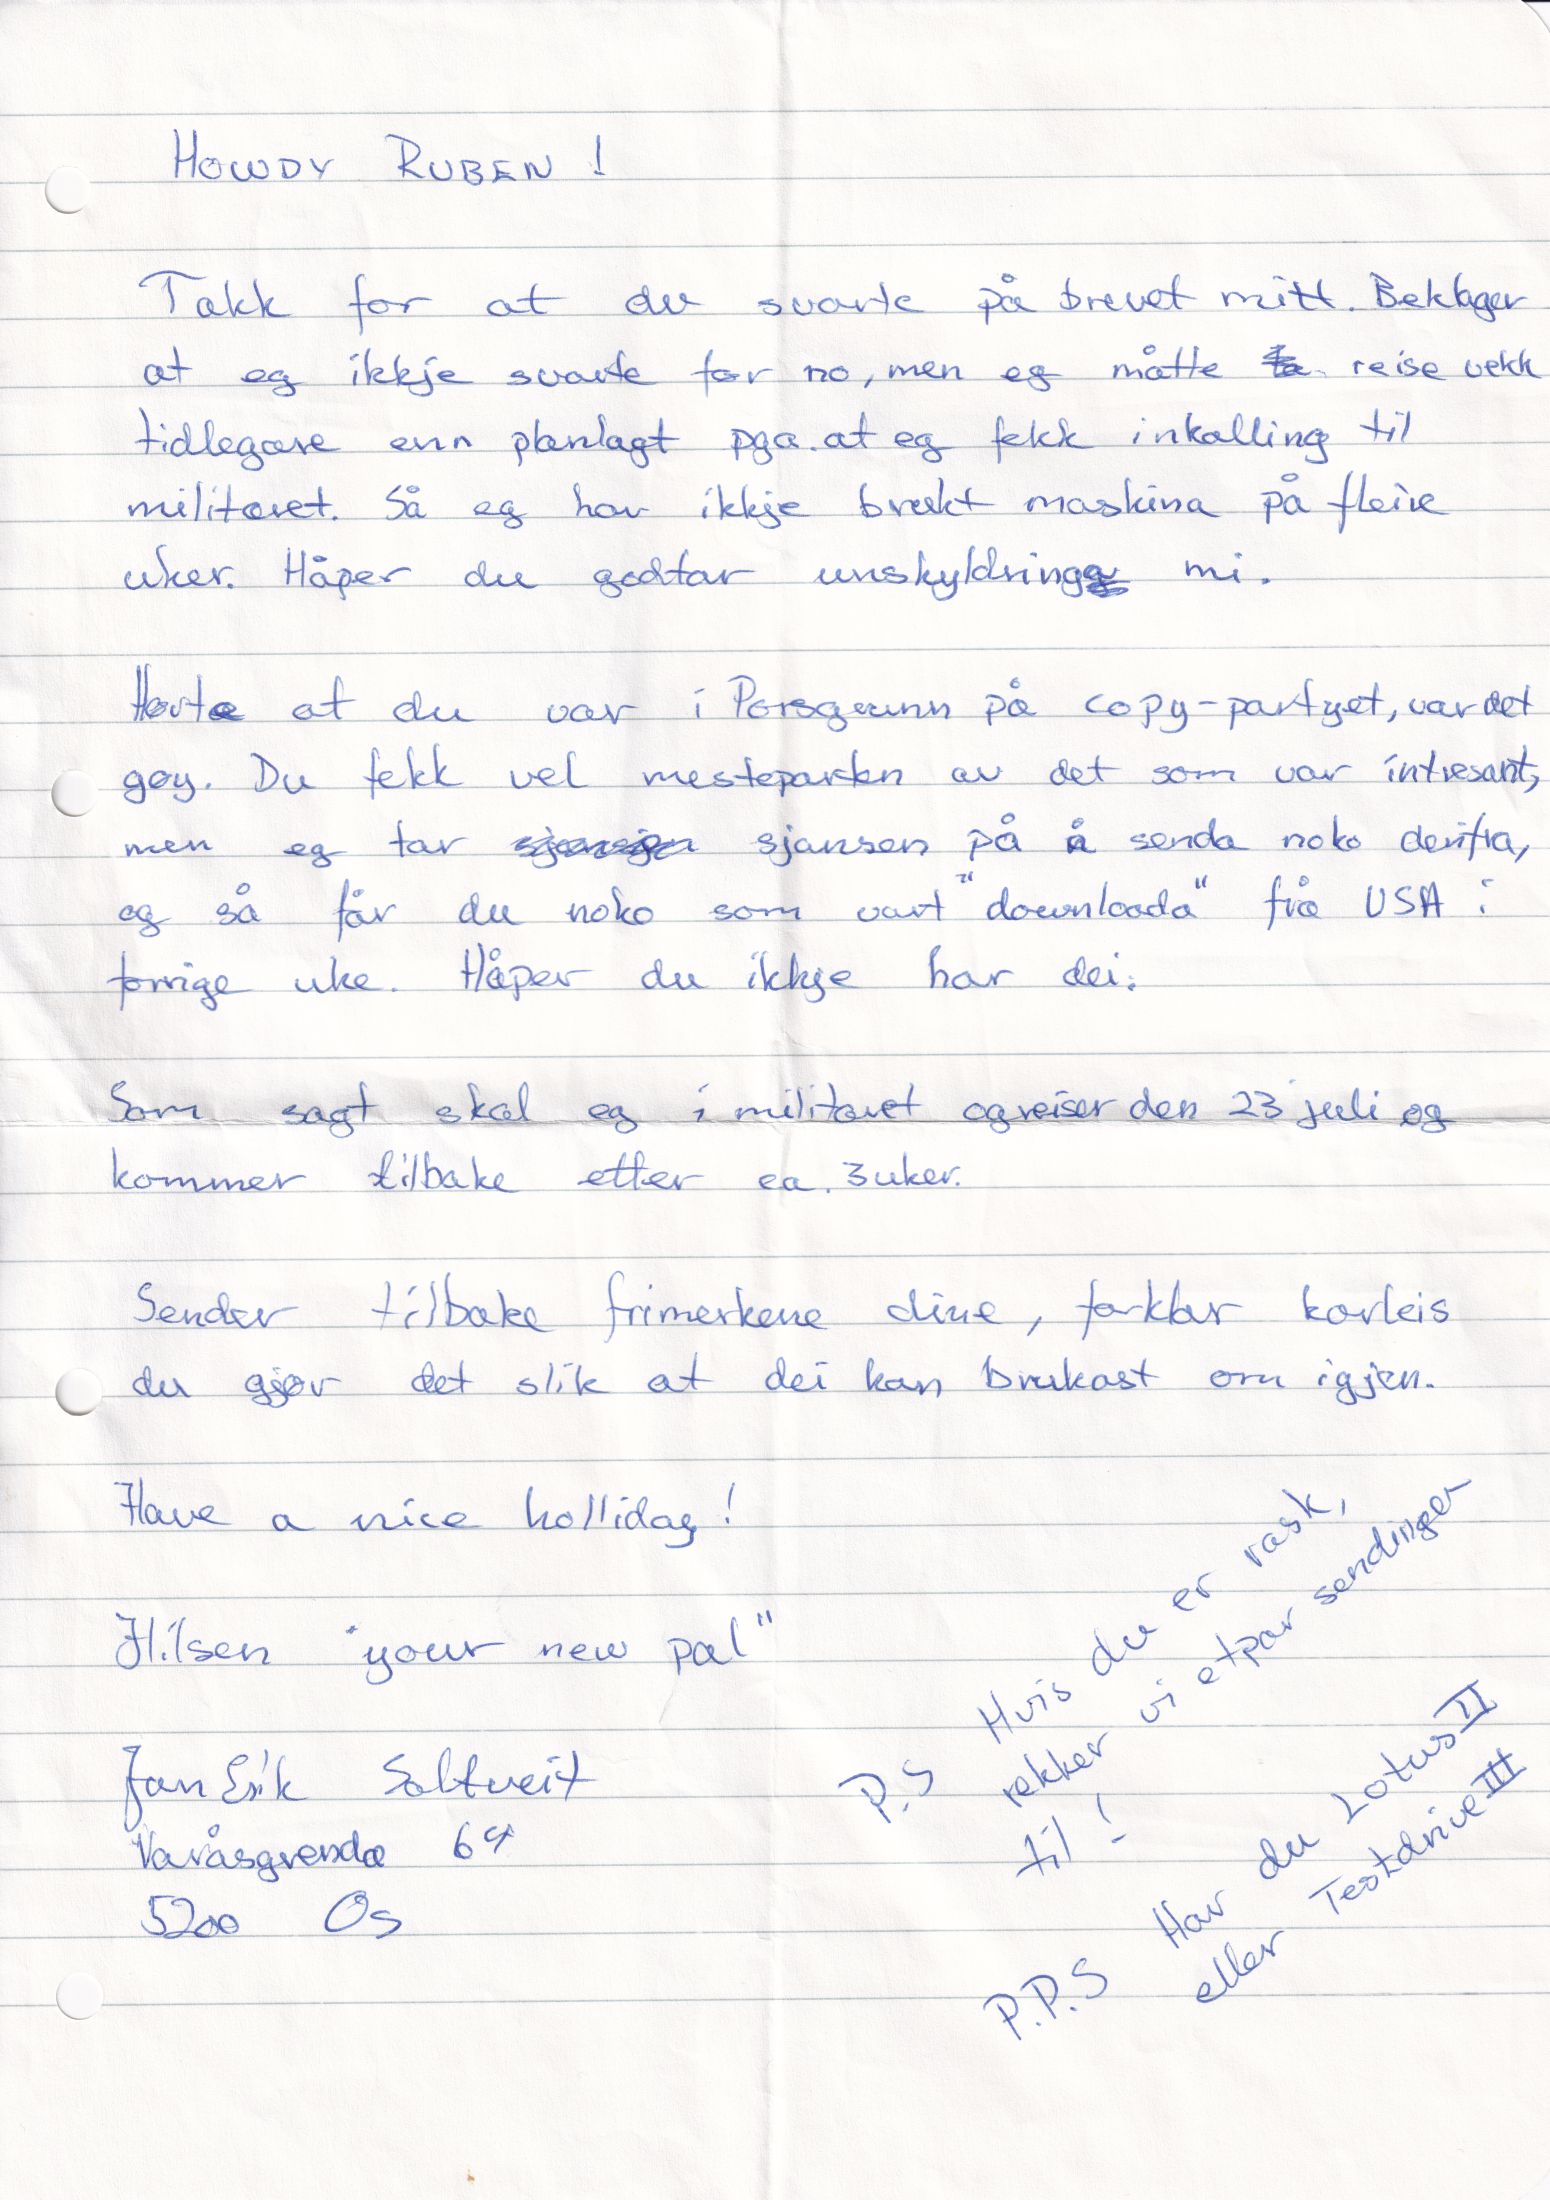 HOWDY RUBEN!
Takk for at du svarte på brevet mitt. Beklager
at eg ikkje svarte før no, men eg måtte reise vekk
tidlegare enn planlagt pga. at eg fekk inkalling til
militæret. Så eg har ikkje brukt maskina på fleire
uker. Håper du godtar unskyldning mi.
Hørte at du var i Porsgrunn på copy-partyet, var det
gøy. Du fekk vel mesteparten av det som var intresant,
men eg tar sjansen på å senda noko derifra,
og så får du noko som vart "downloada" frå USA i
forrige uke. Håper du ikkje har dei.
Som sagt skal eg i militæret og reiser den 23 juli og
kommer tilbake etter ca. 3 uker.
Sender tilbake frimerkene dine, forklar korleis
du gjør det slik at dei kan brukast om igjen.
Have a nice holliday!
Hilsen "your new pal"
Jan Erik Saltveit
Varåsgrenda 64
5200 Os
P.S Hvis du er rask,
rekker vi etpar sendinger
til!
P.P.S Har du Lotus II
eller Testdrive III